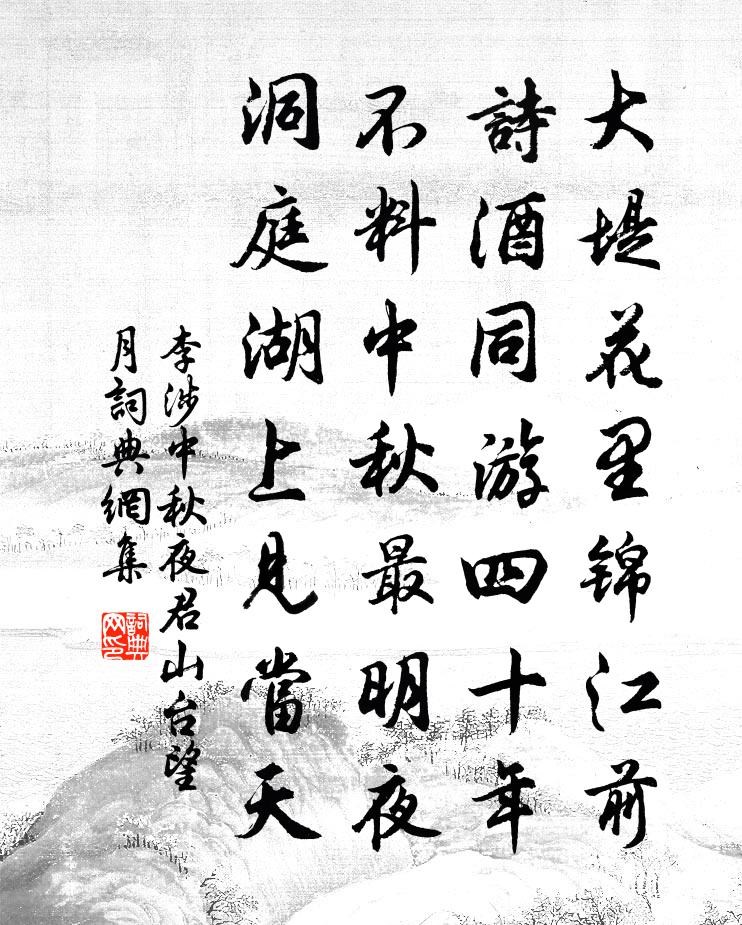 大堤花里锦江前
詩酒同游四十年
不料中秋最明夜
洞庭湖上見當天
李涉中秋夜君山台望
月詞典網集
詞典网印